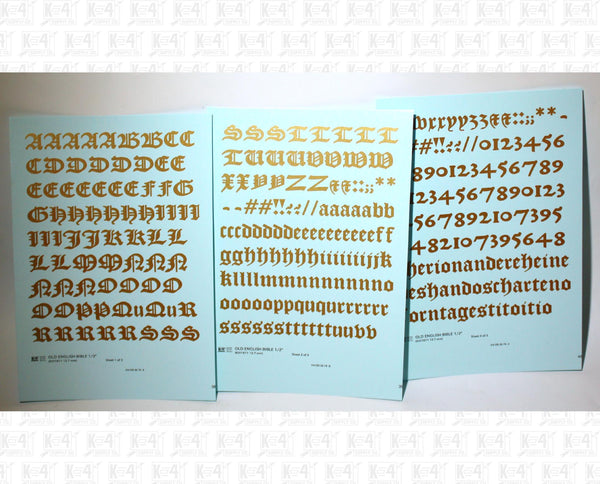 AAAAABBCC
CDDDDDDEE
EEEEEEFFG
GHHHHHHIII
IIIJKKLL
LLMMNNNN
NNNNOOOO
OOPPQuQuR
RRRRRSSS
OLD ENGLISH BIBLE 1/2"
Sheet 1 of 3
SSSTTTTT
TTUUUVWW
XXYYZZ&&::;;**
--##!!??//aaaaabb
cccdddddeeeeeeeef
gghhhhhhiiiiiiijj
kllllmnnnnnnnnnn
oooooppququrrrrr
ssssssstttttttuuv
OLD ENGLISH BIBLE 1/2"
wxxyyzz&&::;;**
-##!!??//0123456
8901234567890123
4567890123
4821073956 48
herionandereheine
eshandoscharteno
orntagestitoitio
OLD ENGLISH BIBLE 1/2"
K4